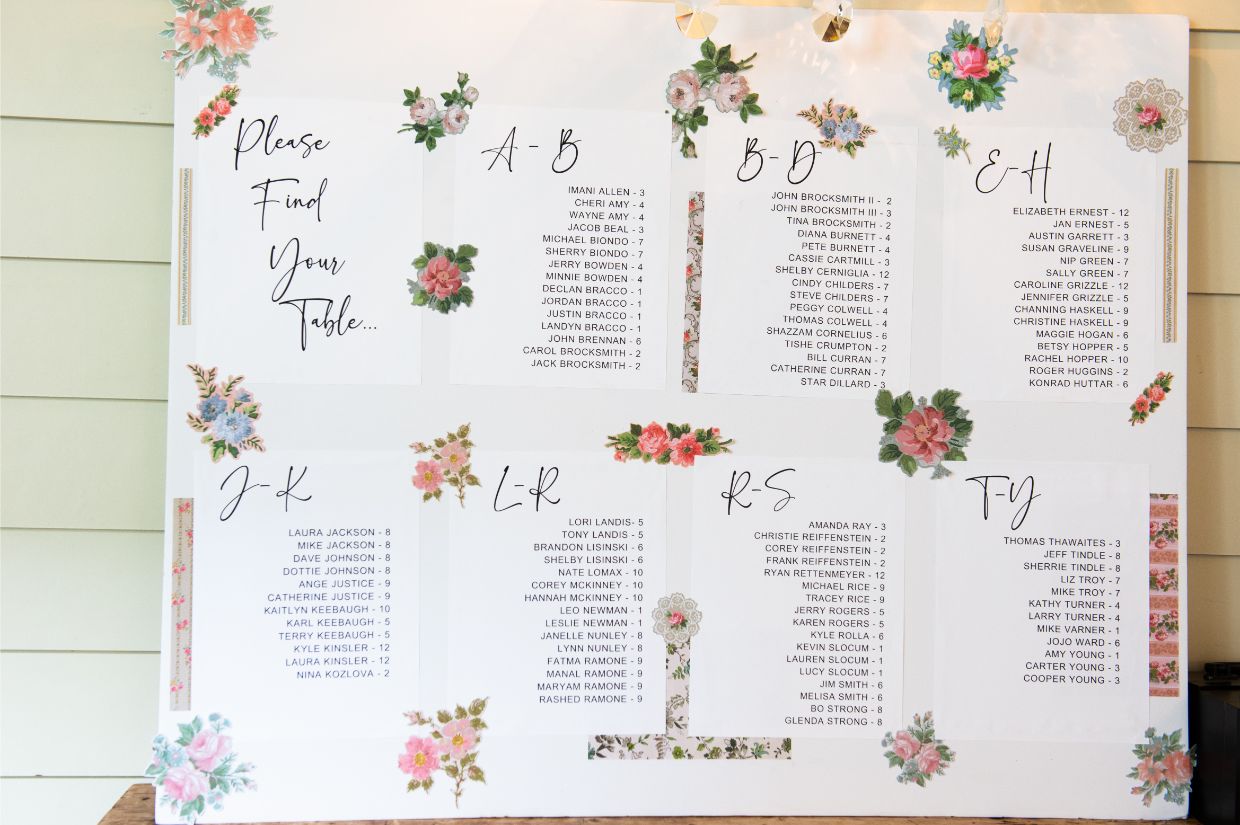 Please
Find
Your
Table...
A - B
IMANI ALLEN - 3
CHERI AMY - 4
WAYNE AMY - 4
JACOB BEAL - 3
MICHAEL BIONDO - 7
SHERRY BIONDO - 7
JERRY BOWDEN - 4
MINNIE BOWDEN - 4
DECLAN BRACCO - 1
JORDAN BRACCO - 1
JUSTIN BRACCO - 1
LANDYN BRACCO - 1
JOHN BRENNAN - 6
CAROL BROCKSMITH - 2
JACK BROCKSMITH - 2
B - D
JOHN BROCKSMITH II - 2
JOHN BROCKSMITH III - 3
TINA BROCKSMITH - 2
DIANA BURNETT - 4
PETE BURNETT - 4
CASSIE CARTMILL - 3
SHELBY CERNIGLIA - 12
CINDY CHILDERS - 7
STEVE CHILDERS - 7
PEGGY COLWELL - 4
THOMAS COLWELL - 4
SHAZZAM CORNELIUS - 6
TISHE CRUMPTON - 2
BILL CURRAN - 7
CATHERINE CURRAN - 7
STAR DILLARD - 3
E-H
ELIZABETH ERNEST - 12
JAN ERNEST - 5
AUSTIN GARRETT - 3
SUSAN GRAVELINE - 9
NIP GREEN - 7
SALLY GREEN - 7
CAROLINE GRIZZLE - 12
JENNIFER GRIZZLE - 5
CHANNING HASKELL - 9
CHRISTINE HASKELL - 9
MAGGIE HOGAN - 6
BETSY HOPPER - 5
RACHEL HOPPER - 10
ROGER HUGGINS - 2
KONRAD HUTTAR - 6
J-K
LAURA JACKSON - 8
MIKE JACKSON - 8
DAVE JOHNSON - 8
DOTTIE JOHNSON - 8
ANGE JUSTICE - 9
CATHERINE JUSTICE - 9
KAITLYN KEEBAUGH - 10
KARL KEEBAUGH - 5
TERRY KEEBAUGH - 5
KYLE KINSLER - 12
LAURA KINSLER - 12
NINA KOZLOVA - 2
L-R
LORI LANDIS- 5
TONY LANDIS - 5
BRANDON LISINSKI - 6
SHELBY LISINSKI - 6
NATE LOMAX - 10
COREY MCKINNEY - 10
HANNAH MCKINNEY - 10
LEO NEWMAN - 1
LESLIE NEWMAN - 1
JANELLE NUNLEY - 8
LYNN NUNLEY - 8
FATMA RAMONE - 9
MANAL RAMONE - 9
MARYAM RAMONE - 9
RASHED RAMONE - 9
R-S
AMANDA RAY - 3
CHRISTIE REIFFENSTEIN - 2
COREY REIFFENSTEIN - 2
FRANK REIFFENSTEIN - 2
RYAN RETTENMEYER - 12
MICHAEL RICE - 9
TRACEY RICE - 9
JERRY ROGERS - 5
KAREN ROGERS - 5
KYLE ROLLA - 6
KEVIN SLOCUM - 1
LAUREN SLOCUM - 1
LUCY SLOCUM - 1
JIM SMITH - 6
MELISA SMITH - 6
BO STRONG - 8
GLENDA STRONG - 8
T-Y
THOMAS THAWAITES - 3
JEFF TINDLE - 8
SHERRIE TINDLE - 8
LIZ TROY - 7
MIKE TROY - 7
KATHY TURNER - 4
LARRY TURNER - 4
MIKE VARNER - 1
JOJO WARD - 6
AMY YOUNG - 1
CARTER YOUNG - 3
COOPER YOUNG - 3